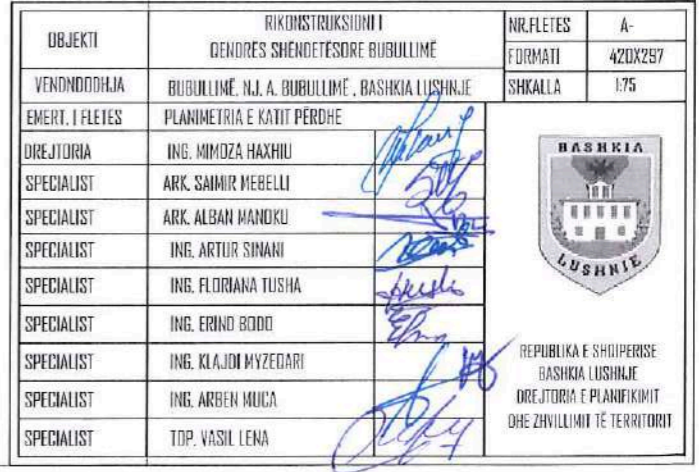 OBJEKTI
RIKONSTRUKSIONI I
QENDRËS SHËNDETËSORE BUBULLIMË
NR.FLETES A-
FORMATI 420X297
VENDNDODHJA BUBULLIMË, NJ. A. BUBULLIMË , BASHKIA LUSHNJE
SHKALLA 1:75
EMERT. I FLETES PLANIMETRIA E KATIT PËRDHE
DREJTORIA ING. MIMOZA HAXHIU
SPECIALIST ARK. SAIMIR MEBELLI
SPECIALIST ARK. ALBAN MANOKU
SPECIALIST ING. ARTUR SINANI
SPECIALIST ING. FLORIANA TUSHA
SPECIALIST ING. ERIND BODO
SPECIALIST ING. KLAJDI MYZEQARI
SPECIALIST ING. ARBEN MUCA
SPECIALIST TOP. VASIL LENA
BASHKIA
LUSHNJE
REPUBLIKA E SHQIPERISE
BASHKIA LUSHNJE
DREJTORIA E PLANIFIKIMIT
DHE ZHVILLIMIT TË TERRITORIT